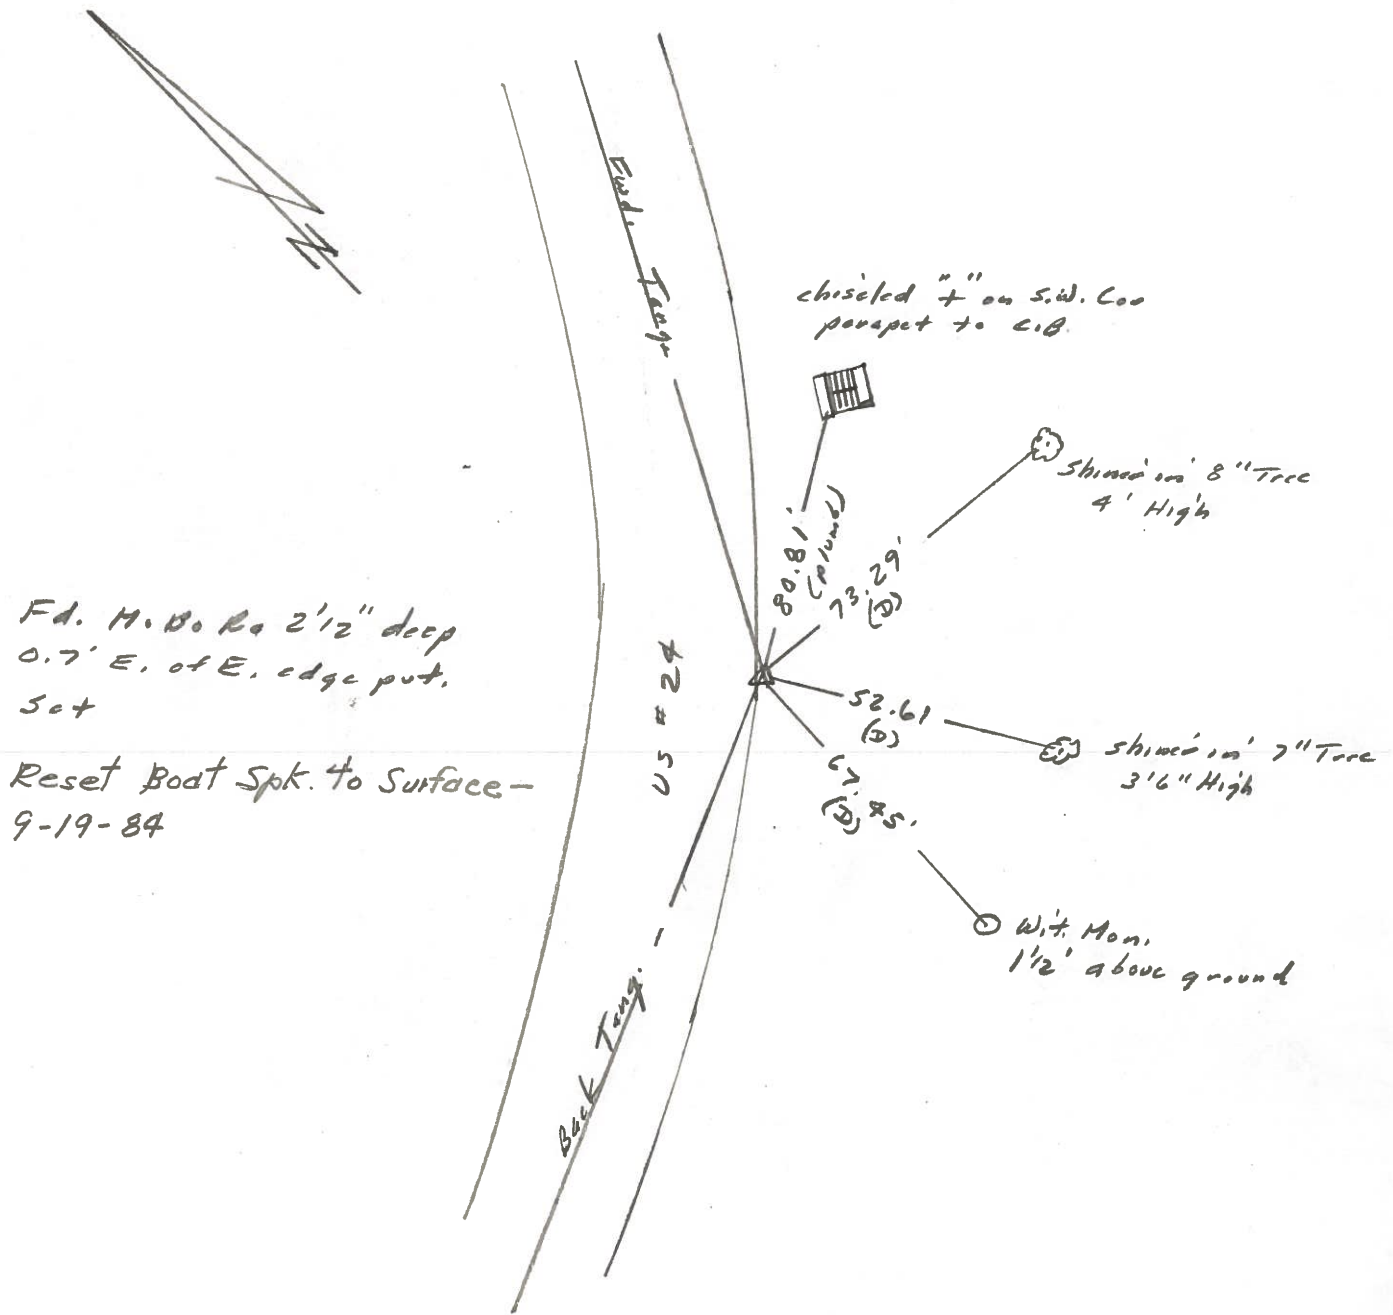 N
Fwd. Tang.
chiseled "+" on S.W. Cor
parapet to C.B.
80.81'
(plumb)
73.29'
(D)
Shiner in 8" Tree
4' High
Fd. M.B.R. 2'1/2" deep
0.7' E. of E. edge pvt.
Set
Reset Boat Spk. to Surface -
9-19-84
US # 24
52.61
(D)
Shiner in 7" Tree
3'6" High
67.45'
(D)
Wit. Mon.
1 1/2' above ground
Back Tang.